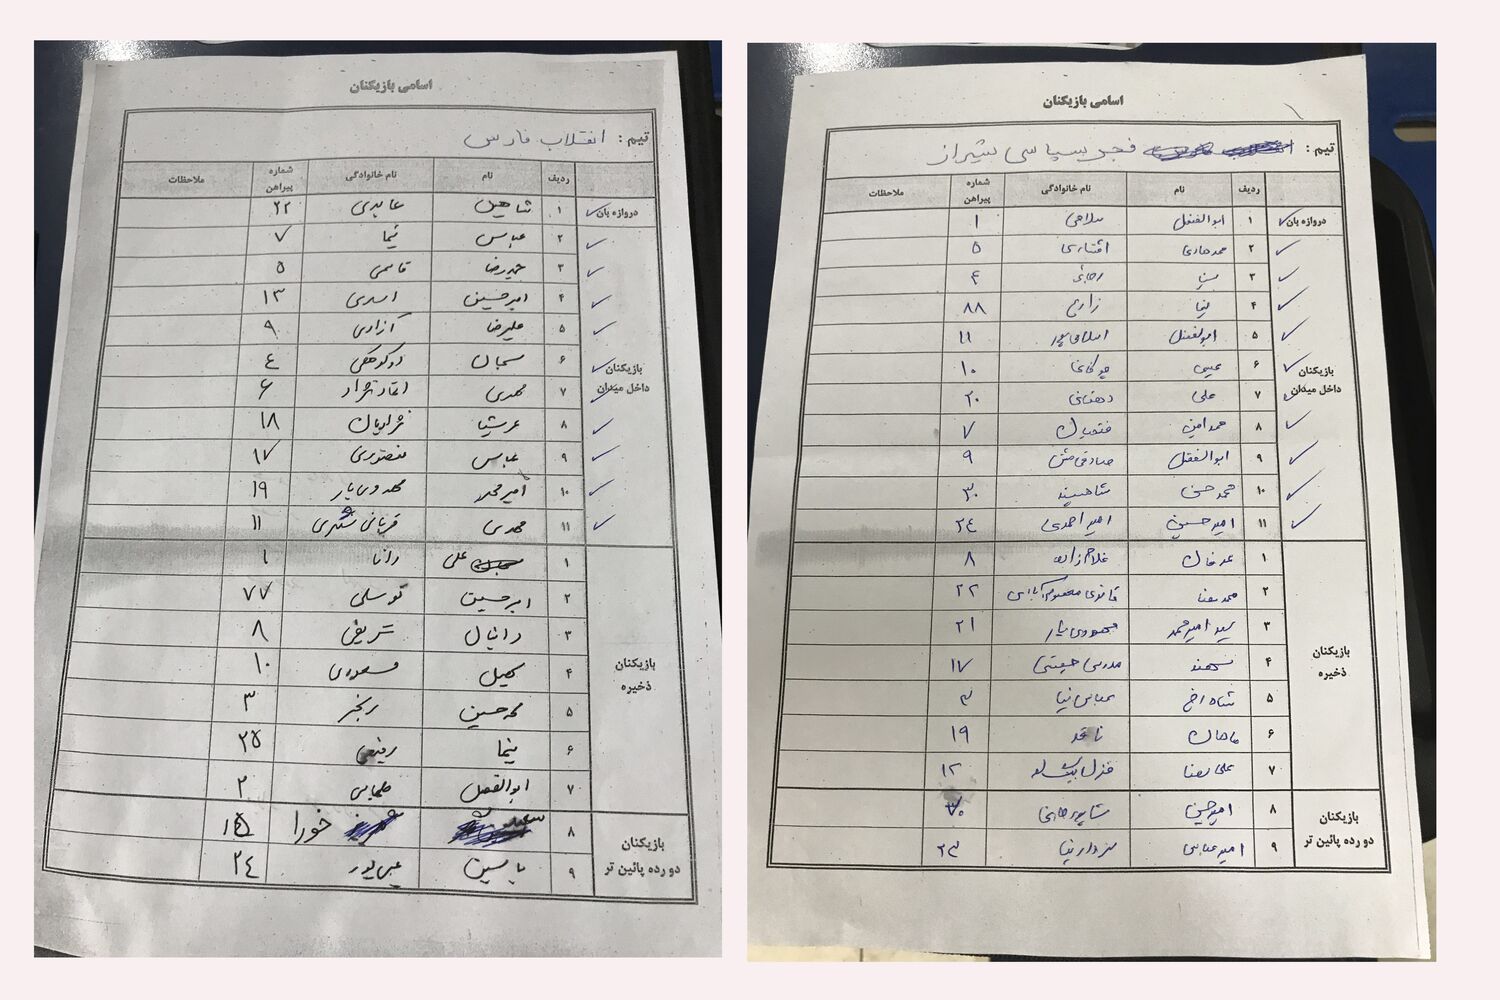 اسامی بازیکنان
تیم : انقلاب فارس
ردیف نام نام خانوادگی شماره پیراهن ملاحظات
دروازه بان ۱ شاهین عابدی ۲۲
۲ عباس نیما ۷
۳ حمیدرضا قاسمی ۵
۴ امیرحسین اسدی ۱۳
۵ علیرضا آزادی ۹
بازیکنان داخل میدان ۶ سبحان ۴
۷ مهدی ۶
۸ عرشیا مرادیان ۱۸
۹ عباس منصوری ۱۷
۱۰ امیرمحمد مهدوی یار ۱۹
۱۱ مهدی قربانی شکری ۱۱
۱ علی دانا ۱
۲ امیرحسین توسلی ۷۷
۳ دانیال شریفی ۸
بازیکنان ذخیره ۴ کمیل مسعودی ۱۰
۵ محمدحسین رنجبر ۳
۶ نیما رفیعی ۲۵
۷ ابوالفضل ۲
بازیکنان دو رده پائین تر ۸ خورا ۱۵
۹ یاسین عیسی پور ۲۴
اسامی بازیکنان
تیم : فجر سپاسی شیراز
ردیف نام نام خانوادگی شماره پیراهن ملاحظات
دروازه بان ۱ ابوالفضل سلاحی ۱
۲ محمدهادی افشاری ۵
۳ سینا رضائی ۴
۴ نیما زارع ۸۸
۵ ابوالفضل اسلامی پور ۱۱
بازیکنان داخل میدان ۶ عیسی ۱۰
۷ علی دهقانی ۲۰
۸ محمدامین ۷
۹ ابوالفضل صادقی منش ۹
۱۰ محمدحسن شاهسوند ۳۰
۱۱ امیرحسین امیراحمدی ۲۴
۱ عرفان غلام زاده ۸
۲ محمدرضا ۲۲
۳ سیدامیرمحمد مهدوی یار ۲۱
بازیکنان ذخیره ۴ سهند ۱۷
۵ شاهرخ عباس نیا ۳
۶ ماهان ناقد ۱۹
۷ علیرضا قزل بیگلو ۱۲
بازیکنان دو رده پائین تر ۸ امیرحسین
۹ امیرعباس سردارنیا ۲۳